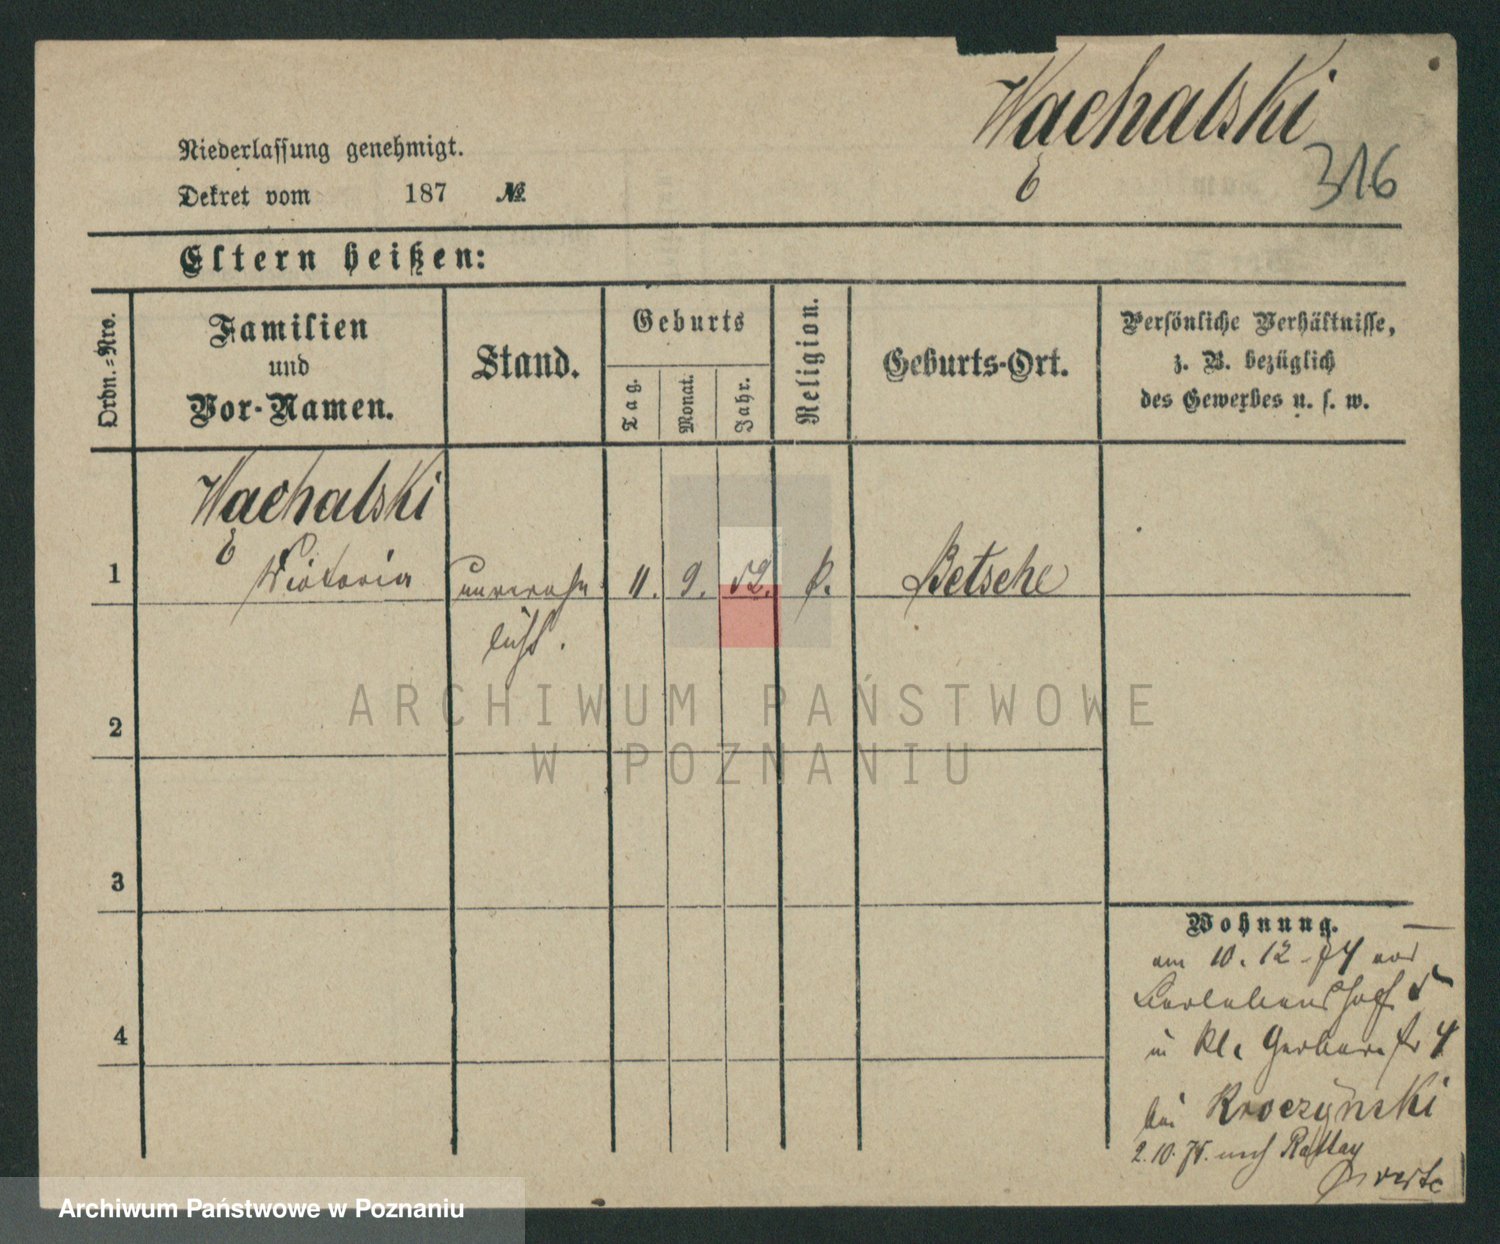 Wachalski
316
Niederlassung genehmigt.
Dekret vom 187 №
Eltern heißen:
Ordn.-Nro.
Familien
und
Vor-Namen.
Stand.
Geburts
Tag.
Monat.
Jahr.
Religion.
Geburts-Ort.
Persönliche Verhältnisse,
z. B. bezüglich
des Gewerbes u. s. w.
Wachalski
1 Victoria unverehe 11. 9. 52. k. Betsche
licht.
2
3
4
Wohnung.
am 10. 12. 74 von
in Kl. Gerberstr 4
bei Kroczynski
2.10.75. nach Rattay
ARCHIWUM PAŃSTWOWE
W POZNANIU
Archiwum Państwowe w Poznaniu